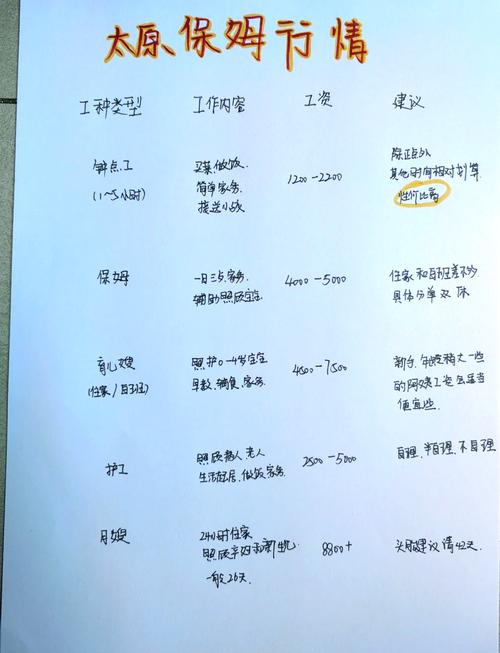 太原保姆行情
工种类型 工作内容 工资 建议
钟点工
(1~5小时)
买菜做饭
简单家务
接送小孩
1200-2200
除正点外
其他时间相对划算
性价比高
保姆
一日三餐家务
辅助照顾宝宝
4000-5000
住家和白班差不多
具体分单双休
育儿嫂
(住家/白班)
照护0-4岁宝宝
早教、辅食、家务
4500-7500
新手、年龄稍大一些
的阿姨工资会适当
便宜些.
护工
照顾病人老人
生活起居、做饭家务
2500-5000
自理、半自理、不自理
月嫂
24小时住家
照顾产妇和新生儿
一般26天.
8800+
头胎建议请42天